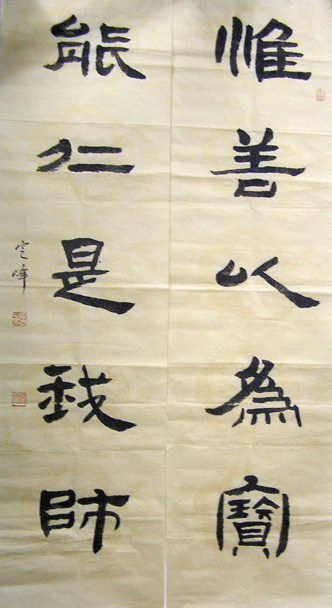 惟善以為寶
能仁是我師
定峰